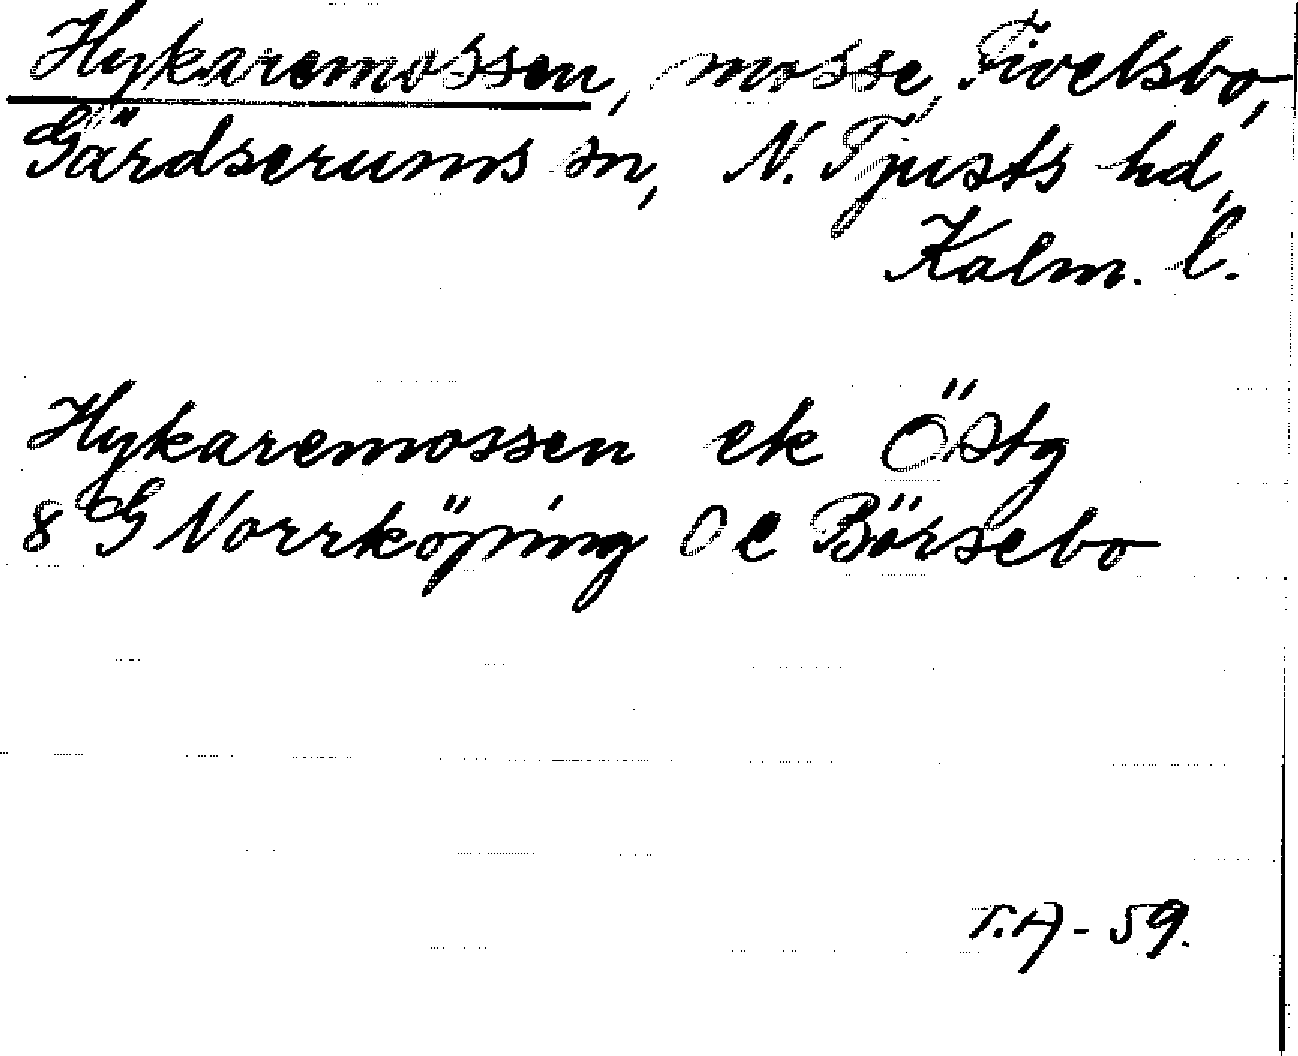 Hykaremossen, mosse, Tivelsbo,
Gärdserums sn, N. Tjusts hd,
Kalm. l.
Hykaremossen ek Östg
8 G Norrköping 0 e Börsebo
T.A - 59.